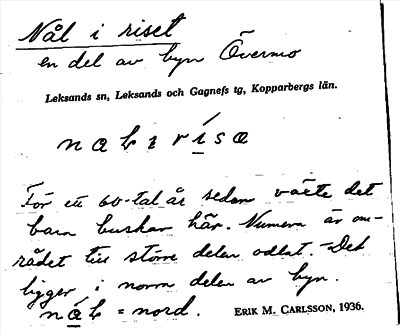 Nål i riset
en del av byn Övermo
Leksands sn, Leksands och Gagnefs tg, Kopparbergs län.
För ett 60-tal år sedan växte det
bara buskar här. Numera är om-
rådet till större delen odlat. Det
ligger i norra delen av byn.
= nord. ERIK M. CARLSSON, 1936.